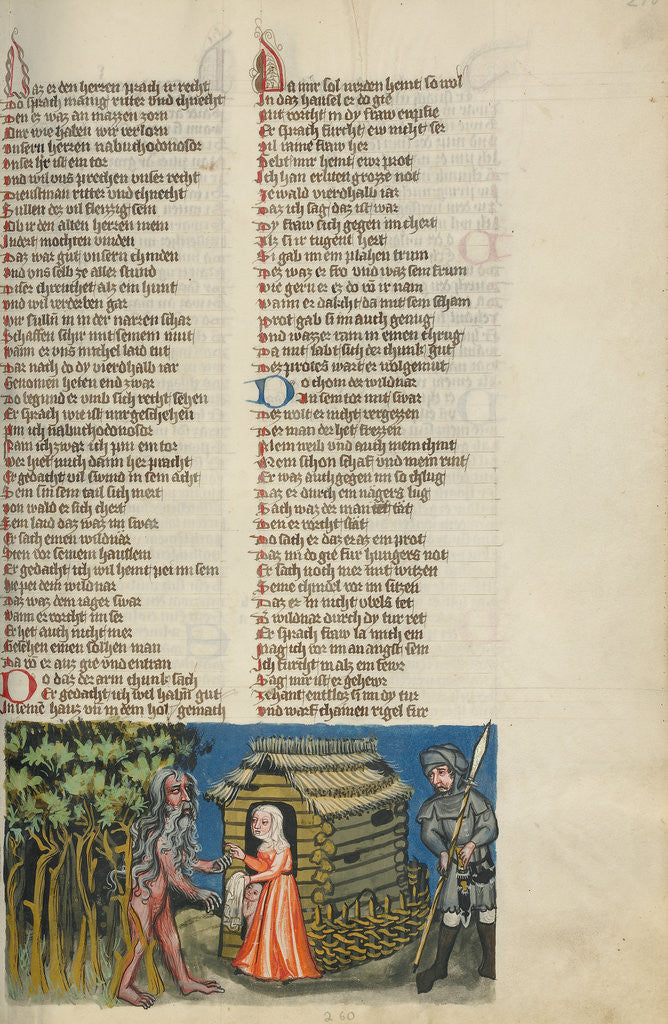 Daz er den herren prach ir recht
Do sprach manig ritter vnd chnecht
Den er waz an mazzen zorn
Owe wie haben wir verlorn
Vnsern herren nabuchodonosor
Vnser hr ist ein tor
Vnd wil vns prechen vnser recht
Dienstman ritter vnd chnecht
Sullen dez vil fleizzig sein
Ob ir den alten herren mein
Indert mochten vinden
Daz war gut vnsern chinden
Vnd vns selb ze aller stund
Diser chreuchet alz ein hunt
Vnd wil verderben gar
Wir sulln in in der narren schar
Schaffen schir mit seinem mut
Wann er vns michel laid tut
Dar nach do dy vierdhalb iar
Genomen heten end zwar
Do begund er vmb sich recht sehen
Er sprach wie ist mir geschehen
Pin ich nabuchodonosor
Nain ich zwar ich pin ein tor
Wer hiet mich dann her pracht
Er gedacht vil swind in sein acht
Sein sin sein tail sich mert
Von wald er sich chert
Sein laid daz waz im swar
Er sach einen wildnar
Sten vor seinem hauslein
Er gedacht ich wil heint pei im sein
Hie pei dem wildnar
Daz waz dem iager swar
Wann er vorcht im ser
Er het auch nicht mer
Gesehen einen solhen man
Da von er auz gie vnd entran
Do daz der arm chunk sach
Er gedacht ich wil haben gut
In seinem haus vnd in dem holtz gemach
Da mir sol werden heint so wol
In daz hausel er do gie
Mit vorcht in dy fraw enpfie
Er sprach furcht ew nicht ser
Vil raine fraw her
Gebt mir heint ewr prot
Ich han erliten grozze not
Ze wald vierdhalb iar
Daz ich sag daz ist war
Dy fraw sich gegen im chert
Alz si ir tugent lert
Si gab im ein plahen trum
Dez waz er fro vnd waz sein frum
Wie gern er ez do von ir nam
Wann er dakcht da mit sein scham
Prot gab si im auch genug
Vnd wazzer rain in einem chrug
Da mit labt sich der chunk gut
Der protes wart er wolgemut
Do chom der wildnar
In sein tor mit swar
Der wolt er nicht vergezzen
Der man der het frezzen
Mein weib vnd auch mein chint
Mein schon schaf vnd mein rint
Er waz auch gegen im so chlug
Daz er durch ein nagers lug
Sach waz der man tet
Den er vorcht stat
Do sach er daz er az ein prot
Daz im do gie fur hungers not
Er sach noch mer mit witzen
Seine chindel vor im sitzen
Daz er in nicht vbels tet
Der wildnar durch dy tur ret
Er sprach fraw la mich ein
Mag ich vor im an angst sein
Ich furcht in alz ein fewr
Sag mir ist er gehewr
Zehant entsloz si im dy tur
Vnd warf chainen rigel fur
260